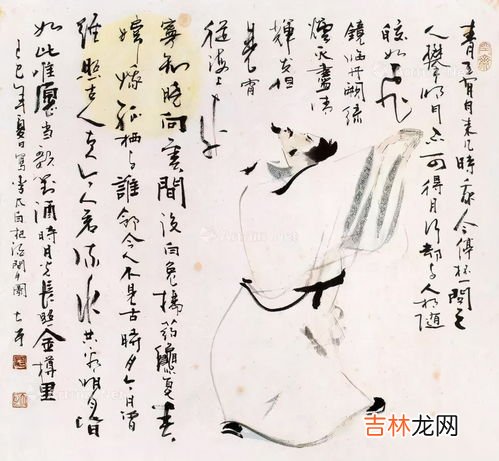 青天有月来几时我今停杯一問之
人攀明月不可得月行却与人相随
皎如飞
鏡临丹阙緑
烟灭尽清
輝发但
见宵
從海上来
寧知晓向雲間没白兔搗药秋复春
嫦娥孤栖与誰邻今人不见古時月今月曾
经照古人古人今人若流水共看明月皆
如此唯愿当歌对酒時月光長照金樽里
乙巳年夏日写李太白把酒問月圖
吉林龙网